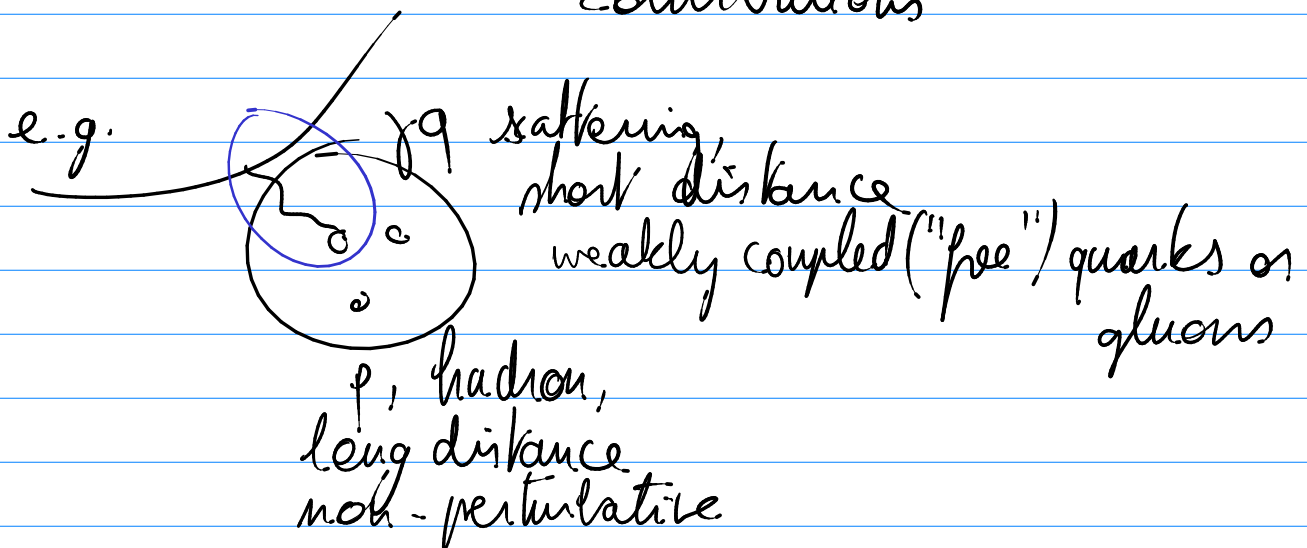 e.g.
γq scattering,
short distance
weakly coupled ("free") quarks or
gluons
p, hadron,
long distance
non-perturbative